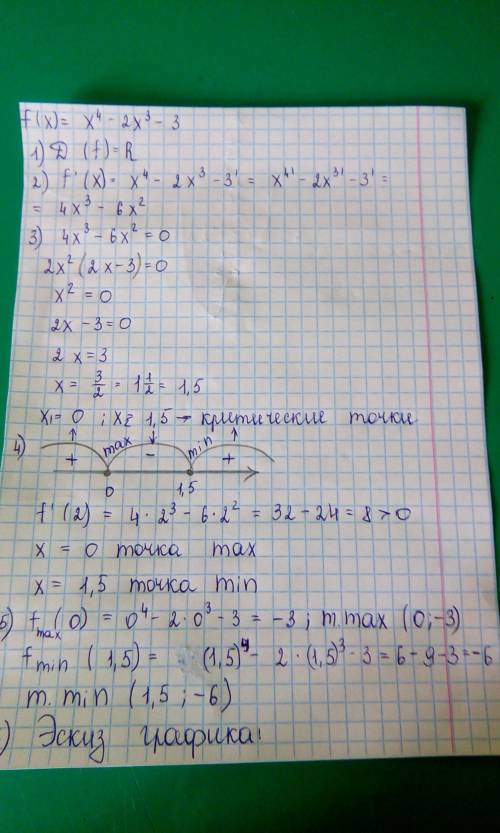 f(x) = x⁴ - 2x³ - 3
1) D (f) = R
2) f'(x) = x⁴ - 2x³ - 3' = x⁴' - 2x³' - 3' =
= 4x³ - 6x²
3) 4x³ - 6x² = 0
2x² (2x - 3) = 0
x² = 0
2x - 3 = 0
2x = 3
x = 3/2 = 1 1/2 = 1,5
x₁ = 0 ; x₂ = 1,5 → критические точки
4) + ↑ max - ↓ min + ↑
0 1,5
f'(2) = 4 · 2³ - 6 · 2² = 32 - 24 = 8 > 0
x = 0 точка max
x = 1,5 точка min
5) f max (0) = 0⁴ - 2 · 0³ - 3 = -3 ; т. max (0; -3)
f min (1,5) = (1,5)⁴ - 2 · (1,5)³ - 3 = 6 - 9 - 3 = -6
т. min (1,5 ; -6)
) Эскиз графика!